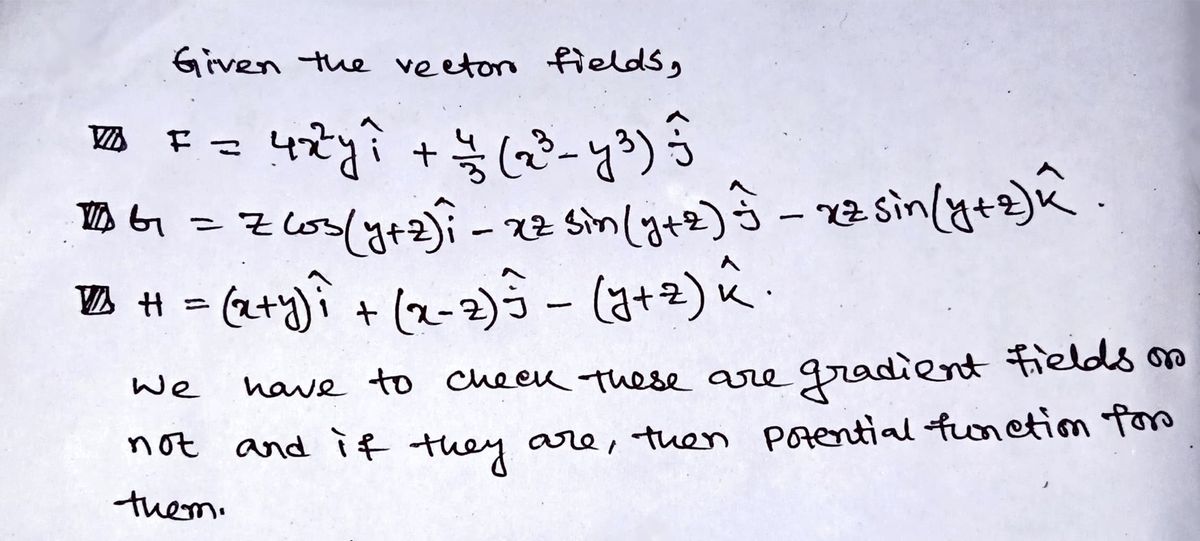 Given the vector fields,
F = 4x²y î + 4/3 (x³ - y³) ĵ
G = z cos(y+z) î - xz sin(y+z) ĵ - xz sin(y+z) k̂.
H = (x+y) î + (x-z) ĵ - (y+z) k̂.
We have to check these are gradient fields or
not and if they are, then potential function for
them.